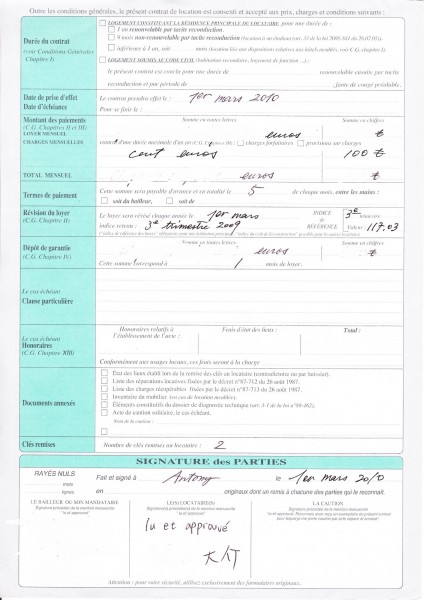 Outre les conditions générales, le présent contrat de location est consenti et accepté aux prix, charges et conditions suivants :
Durée du contrat
(voir Conditions Générales
Chapitre I)
LOGEMENT CONSTITUANT LA RÉSIDENCE PRINCIPALE DU LOCATAIRE pour une durée de :
1 an renouvelable par tacite reconduction.
9 mois non-renouvelable par tacite reconduction
inférieure à 1 an, soit mois
LOGEMENT SOUMIS AU CODE CIVIL
Le présent contrat est conclu pour une durée de renouvelable ensuite par tacite
reconduction et par période de faute de congé préalable.
Date de prise d'effet
Le contrat prendra effet le : 1er mars 2010
Date d'échéance
Pour se finir le :
Montant des paiements
(C.G. Chapitres II et III)
Somme en toutes lettres
Somme en chiffres
LOYER MENSUEL
euros
€
CHARGES MENSUELLES
charges forfaitaires
provisions sur charges
cent euros
100 €
TOTAL MENSUEL
euros
€
Termes de paiement
Cette somme sera payable d'avance et en totalité le 5 de chaque mois, entre les mains :
soit du bailleur,
soit de
Révision du loyer
(C.G. Chapitre II)
Le loyer sera révisé chaque année le 1er mars
indice retenu : 3e trimestre 2009
INDICE
de
RÉFÉRENCE
3e trimestre
Valeur 117.03
Dépôt de garantie
(C.G. Chapitre IV)
Somme en toutes lettres
Somme en chiffres
euros
€
Cette somme correspond à 1 mois de loyer.
Le cas échéant
Clause particulière
Le cas échéant
Honoraires
(C.G. Chapitre XIII)
Honoraires relatifs à
l'établissement de l'acte :
Frais d'état des lieux :
Total :
Conformément aux usages locaux, ces frais seront à la charge
Documents annexés
État des lieux établi lors de la remise des clés au locataire (contradictoire ou par huissier).
Liste des réparations locatives fixées par le décret n°87-712 du 26 août 1987.
Liste des charges récupérables fixées par le décret n°87-713 du 26 août 1987.
Inventaire du mobilier (cas de location meublée).
Éléments constitutifs du dossier de diagnostic technique
Acte de caution solidaire, le cas échéant.
Nom de la caution :
Clés remises
Nombre de clés remises au locataire : 2
SIGNATURE des PARTIES
RAYÉS NULS
mots
lignes
Fait et signé à Antony le 1er mars 2010
en originaux dont un remis à chacune des parties qui le reconnait.
LE BAILLEUR OU SON MANDATAIRE
Signature précédée de la mention manuscrite
"lu et approuvé"
LE(S) LOCATAIRE(S)
Signature(s) précédée(s) de la mention manuscrite
"lu et approuvé"
LA CAUTION
lu et approuvé
Attention : pour votre sécurité, utilisez exclusivement des formulaires originaux.